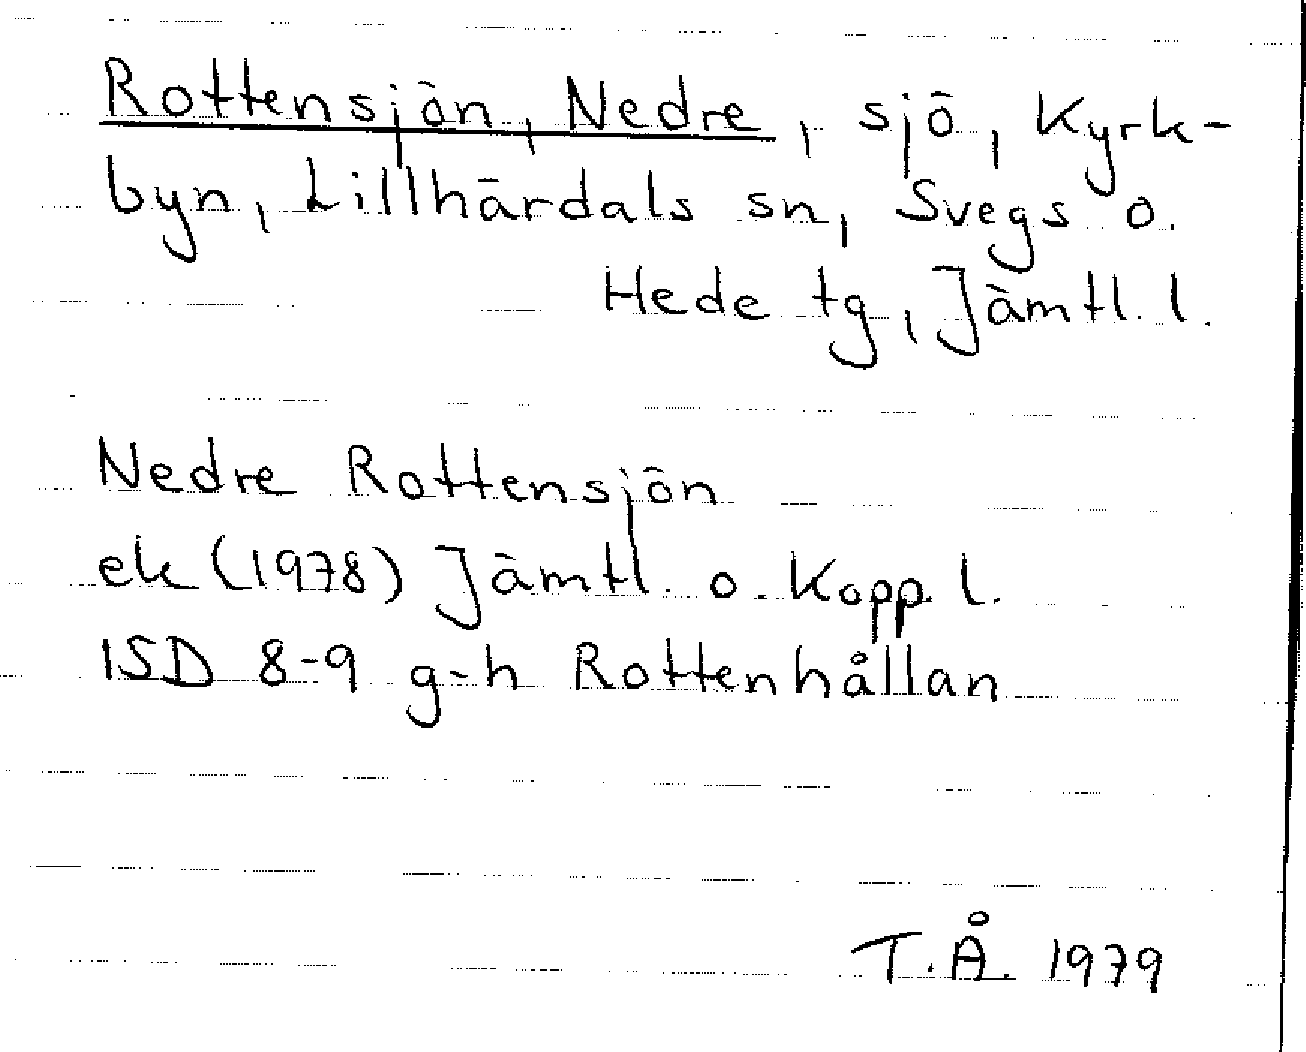 Rottensjön, Nedre, sjö, Kyrk-
byn, Lillhärdals sn, Svegs o.
Hede tg, Jämtl. l.
Nedre Rottensjön
ek (1978) Jämtl. o. Kopp. l.
ISD 8-9 g-h Rottenhållan
T.Å. 1979